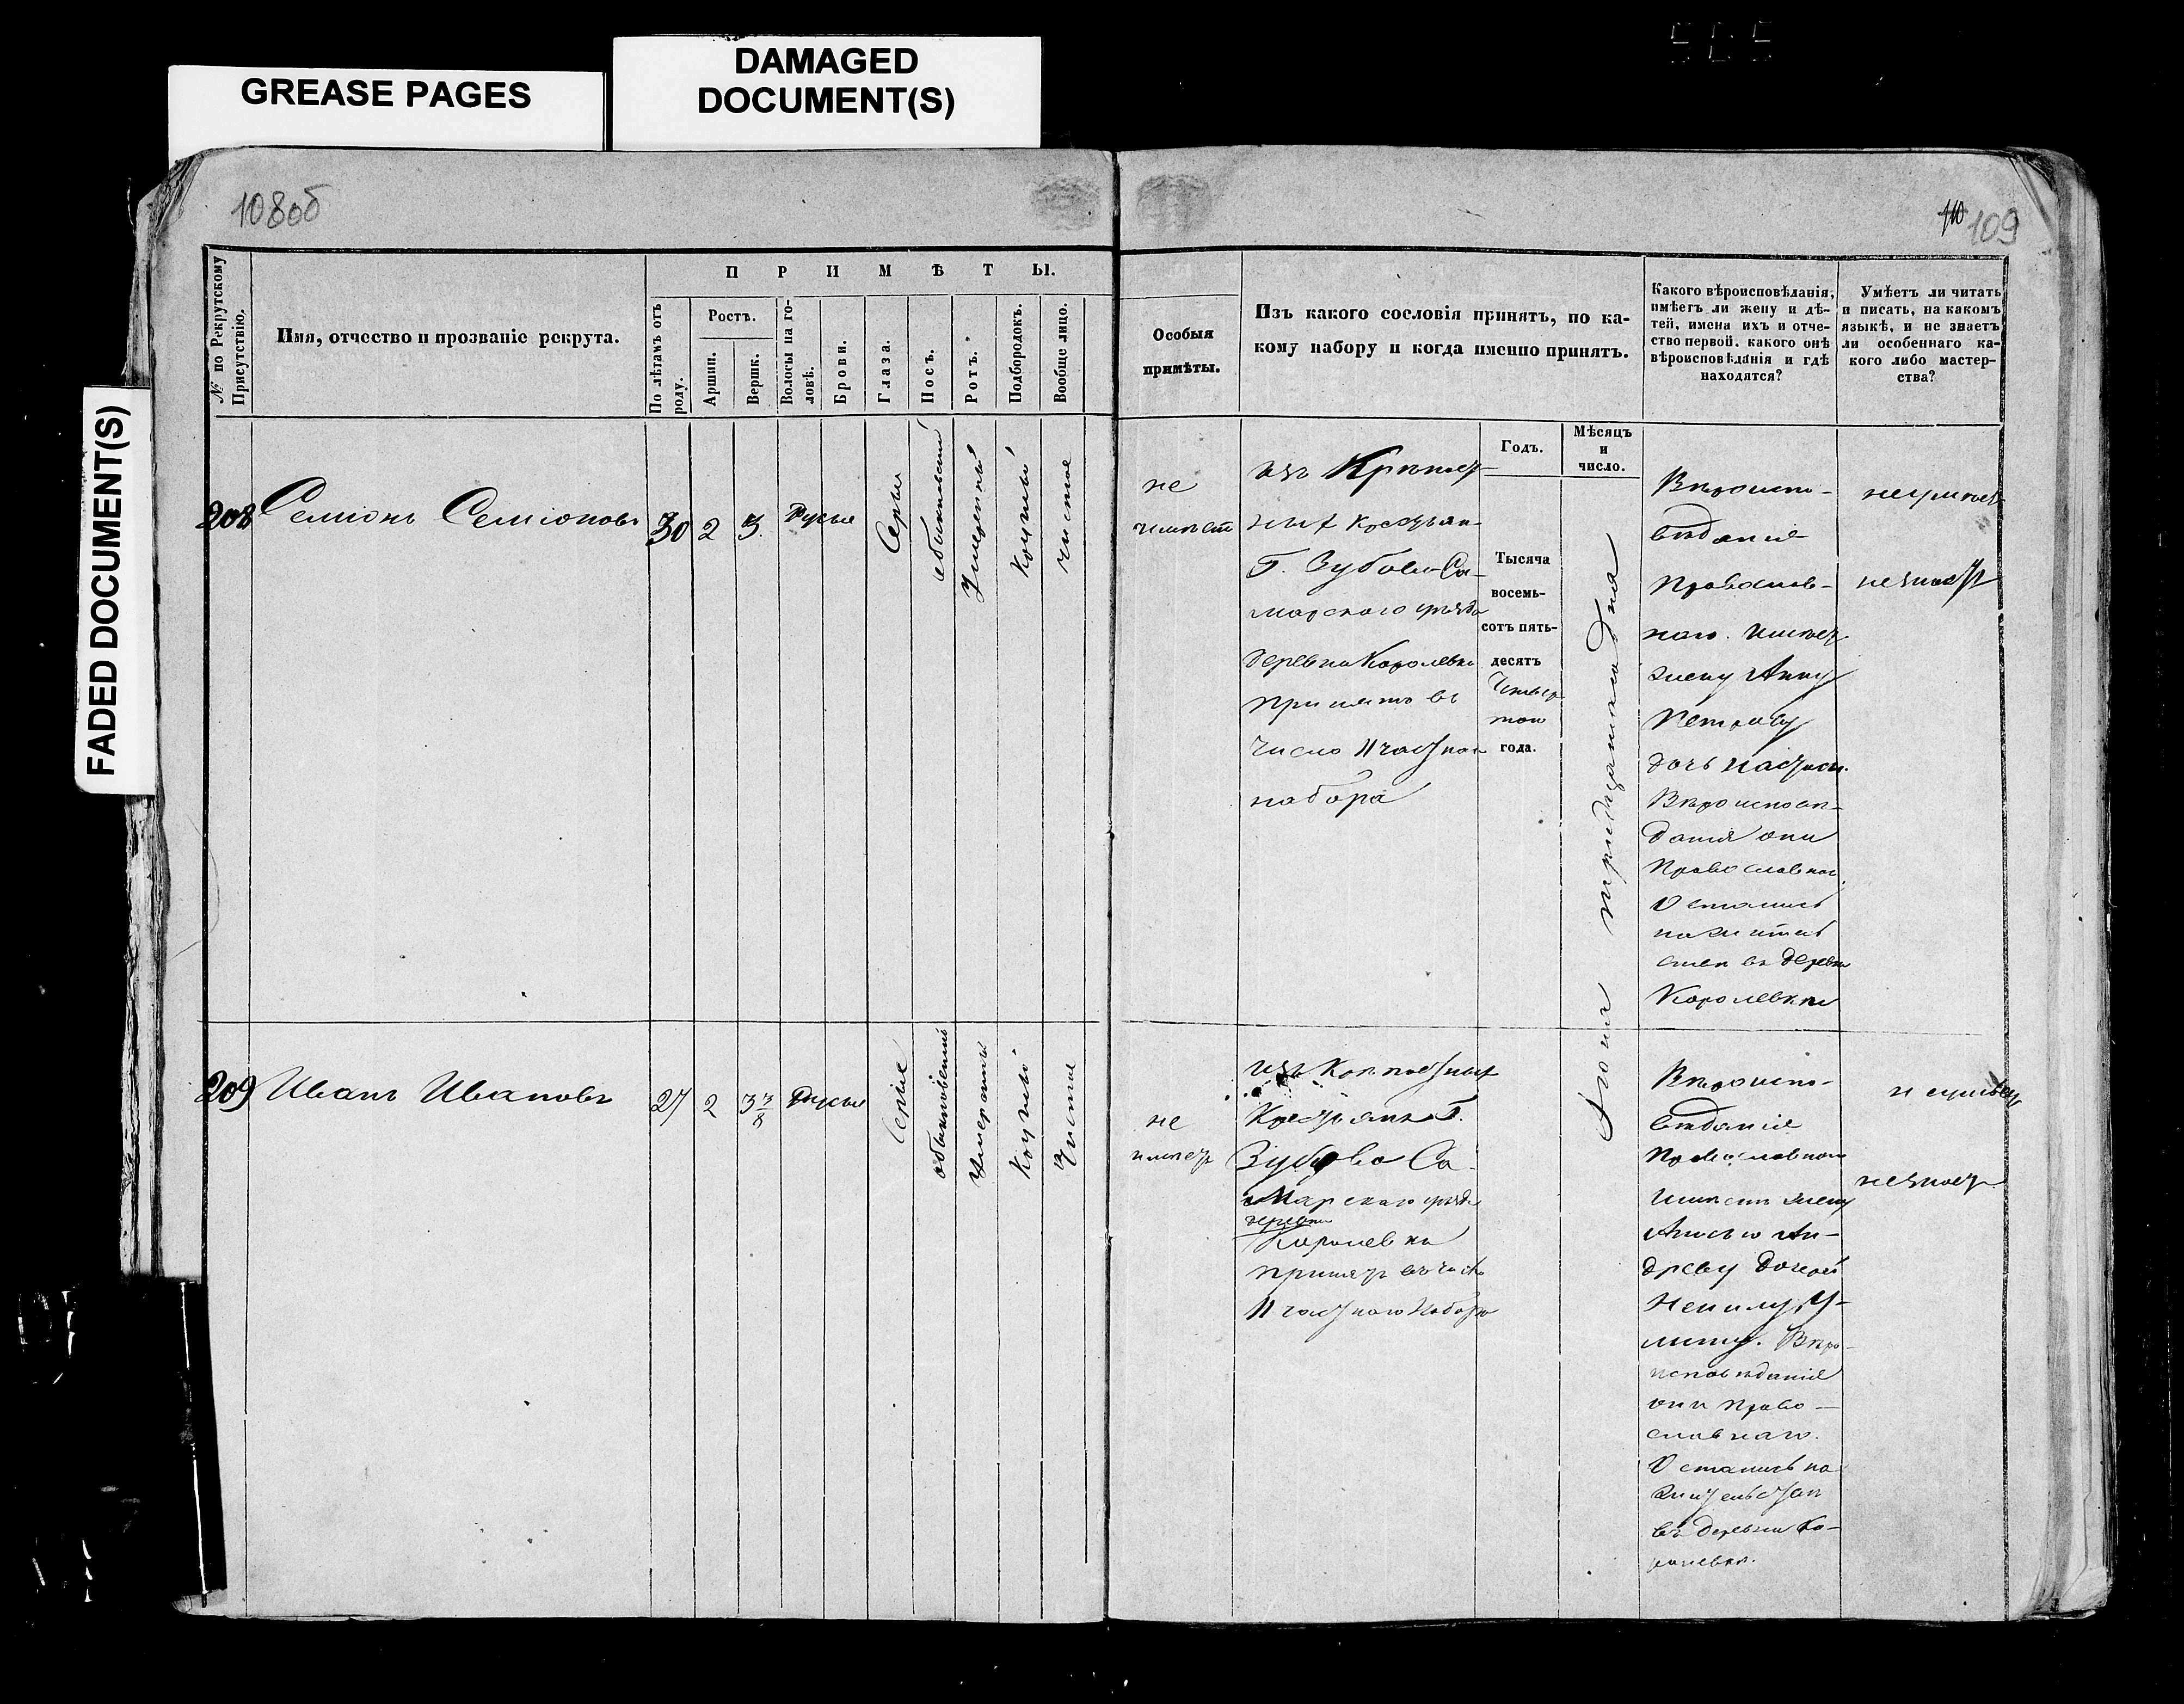 GREASE PAGES
DAMAGED
DOCUMENT(S)
FADED DOCUMENT(S)
108об
110 109
№ по Рекрутскому
Присутствію.
Имя, отчество и прозваніе рекрута.
ПРИМѢТЫ.
По лѣтамъ отъ
роду.
Ростъ.
Аршин.
Вершк.
Волосы на го-
ловѣ.
Брови.
Глаза.
Носъ.
Ротъ.
Подбородокъ.
Вообще лицо.
Особыя
примѣты.
Изъ какого сословія принятъ, по ка-
кому набору и когда именно принятъ.
Какого вѣроисповѣданія,
имѣетъ ли жену и дѣ-
тей, имена ихъ и отче-
ство первой, какого онѣ
вѣроисповѣданія и гдѣ
находятся?
Умѣетъ ли читать
и писать, на какомъ
языкѣ, и не знаетъ
ли особеннаго ка-
кого либо мастер-
ства?
Годъ.
Мѣсяцъ
и
число.
208 Семіонъ Семіоновъ
30 2 3 Русыя
Серыя
обыкновенный
Умеренный
Круглый
чистое
не
имѣетъ
изъ Крѣпост-
ныхъ крестьян
Г. Зубова Са-
марского уѣзда
деревни Королевки
принятъ въ
число 11 частнаго
набора
Тысяча
восемь-
сотъ пять-
десятъ
Четвер
таго
года.
Іюня тридцатаго дня
Вѣроиспо-
вѣданіе
Православ-
наго. Имѣетъ
жену Анну
Петрову
дочь Настасью.
Вѣроисповѣ-
данія они
Православнаго.
Остались
на житель
ствѣ въ деревни
Королевки
неумѣетъ
незнаетъ
209 Иванъ Ивановъ
27 2 3 3/8 Русыя
Серые
обыкновенный
Умеренный
Круглый
Чистое
не
имѣетъ
изъ Крѣпостныхъ
Крестьянъ Г.
Зубова Са-
Марскаго уѣзда
деревни
Королевки
принятъ въ число
11 частнаго Набора
Вѣроиспо-
вѣданіе
Православнаго
имѣетъ жену
Анисью Ан-
древу дочерей
Ненилу, У-
литу. Вѣро-
исповѣданія
они Право-
славнаго.
Остались на
жительствѣ
въ деревни Ко-
ролевки.
неумѣетъ
незнаетъ